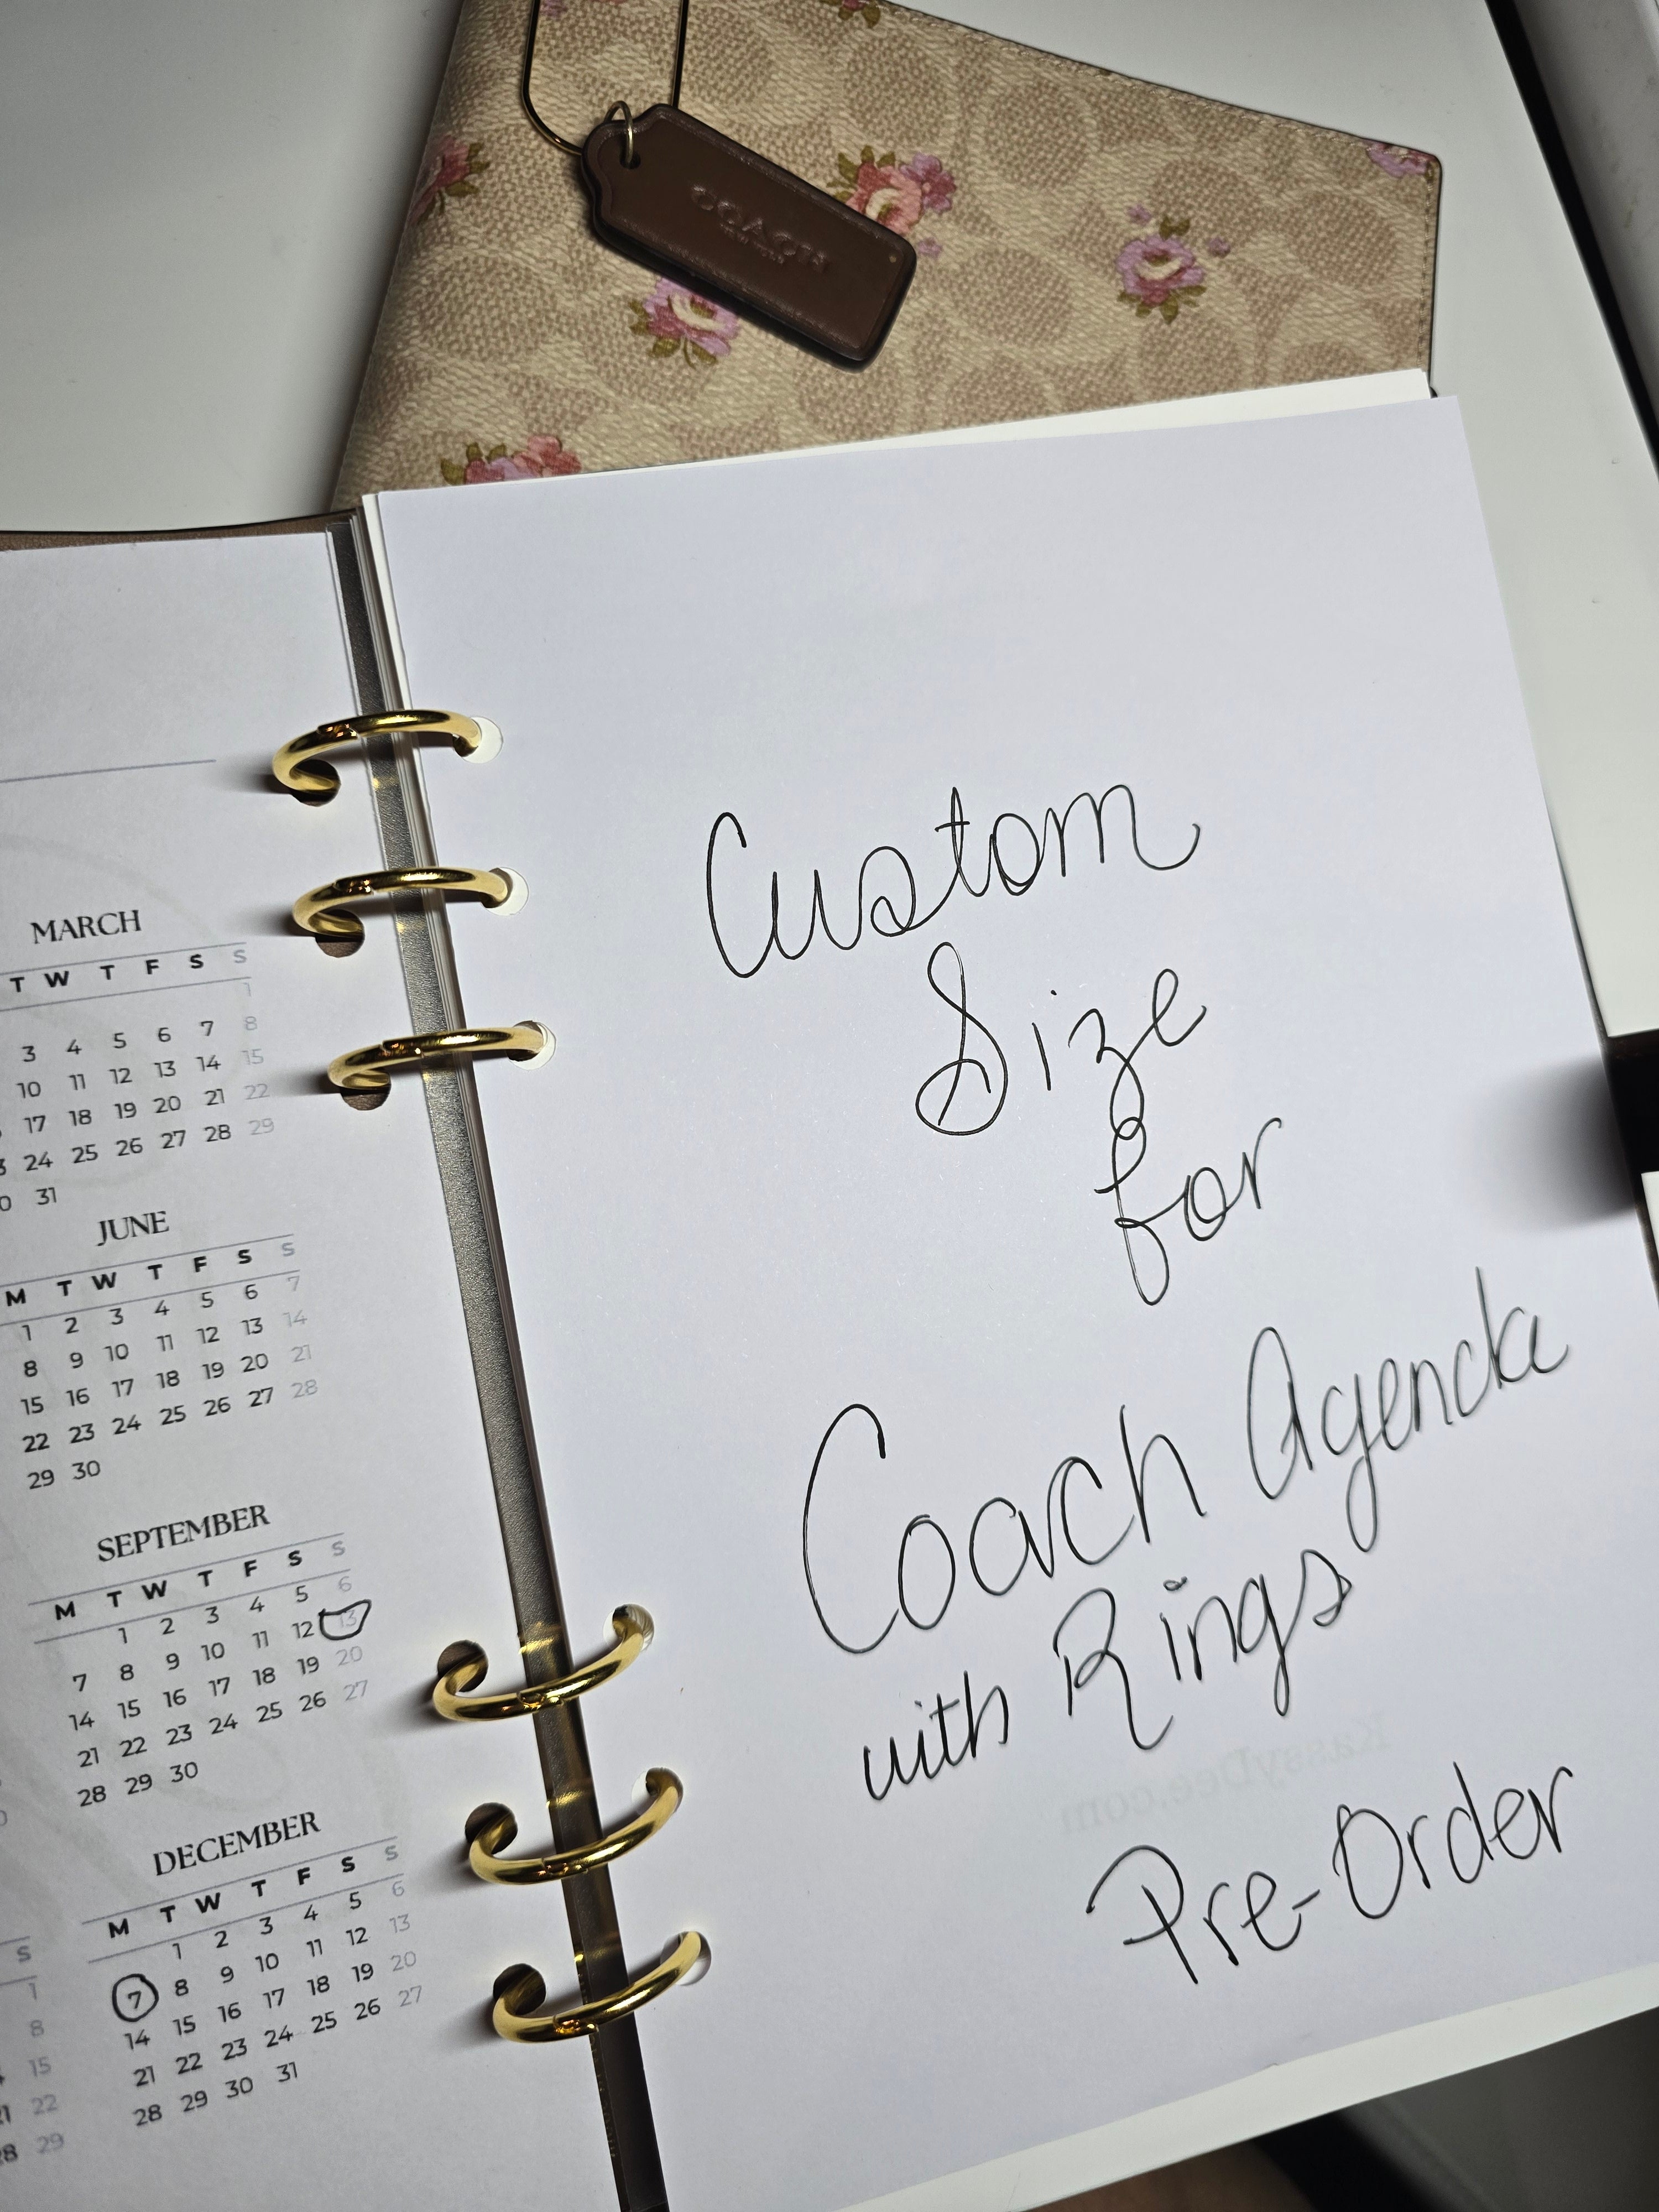 COACH
MARCH
T W T F S S
1
3 4 5 6 7 8
10 11 12 13 14 15
17 18 19 20 21 22
24 25 26 27 28 29
31
JUNE
M T W T F S S
1 2 3 4 5 6 7
8 9 10 11 12 13 14
15 16 17 18 19 20 21
22 23 24 25 26 27 28
29 30
SEPTEMBER
M T W T F S S
1 2 3 4 5 6
7 8 9 10 11 12 13
14 15 16 17 18 19 20
21 22 23 24 25 26 27
28 29 30
DECEMBER
M T W T F S S
1 2 3 4 5 6
7 8 9 10 11 12 13
14 15 16 17 18 19 20
21 22 23 24 25 26 27
28 29 30 31
S
1
8
15
22
29
Custom
Size
for
Coach Agenda
with Rings
Pre-Order
KassyDee.com